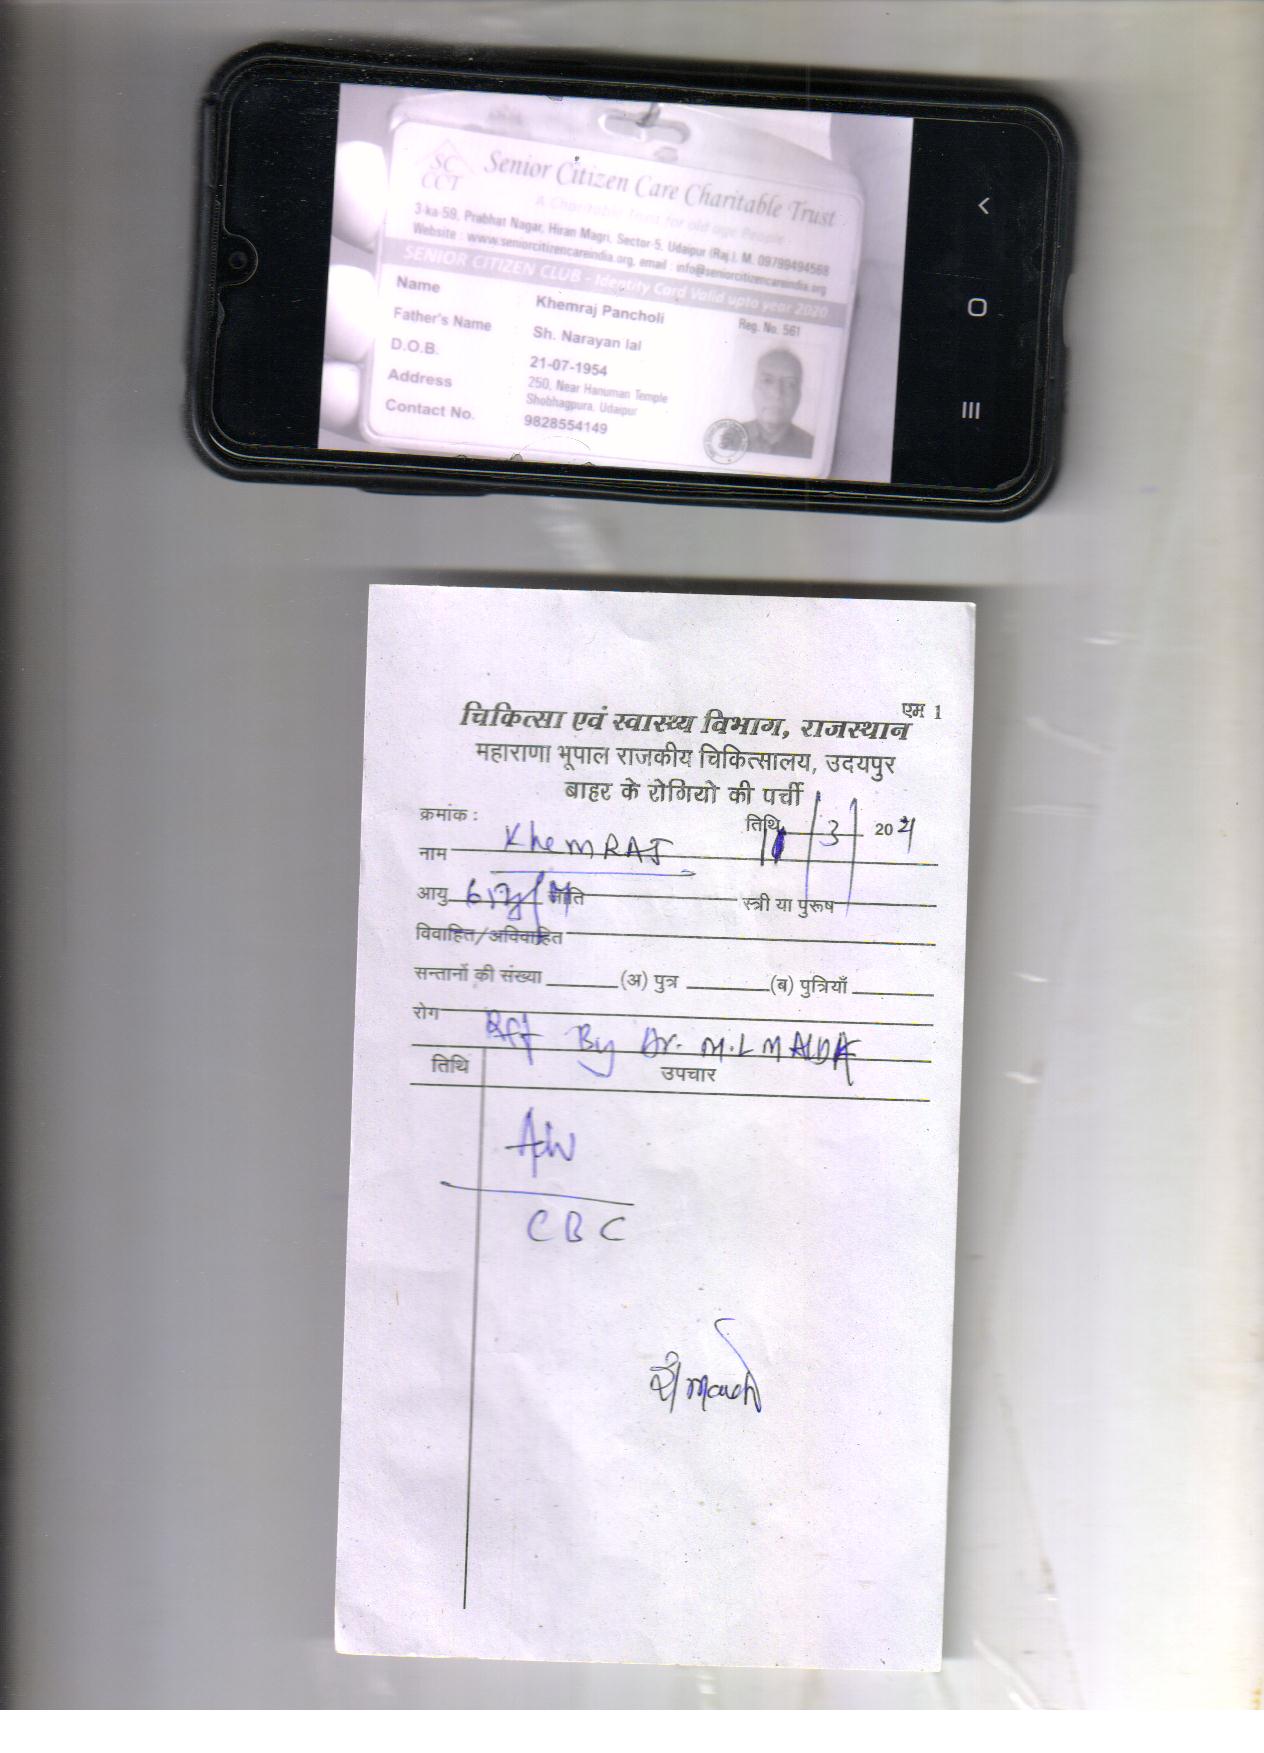 SC
CCT
Senior Citizen Care Charitable Trust
A Charitable Trust for old age People
3-ka-59, Prabhat Nagar, Hiran Magri, Sector-5, Udaipur (Raj.), M. 09799494568
Website : www.seniorcitizencareindia.org, email : info@seniorcitizencareindia.org
SENIOR CITIZEN CLUB - Identity Card Valid upto year 2020
Reg. No. 561
Name : Khemraj Pancholi
Father's Name : Sh. Narayan lal
D.O.B. : 21-07-1954
Address : 250, Near Hanuman Temple
Shobhagpura, Udaipur
Contact No. : 9828554149
एम 1
चिकित्सा एवं स्वास्थ्य विभाग, राजस्थान
महाराणा भूपाल राजकीय चिकित्सालय, उदयपुर
बाहर के रोगियो की पर्ची
क्रमांक : तिथि 3 20
नाम KhemRAJ
आयु जाति स्त्री या पुरूष
विवाहित/अविवाहित
सन्तानों की संख्या (अ) पुत्र (ब) पुत्रियाँ
रोग
Ref By Dr. M.L
तिथि उपचार
Adv
CBC